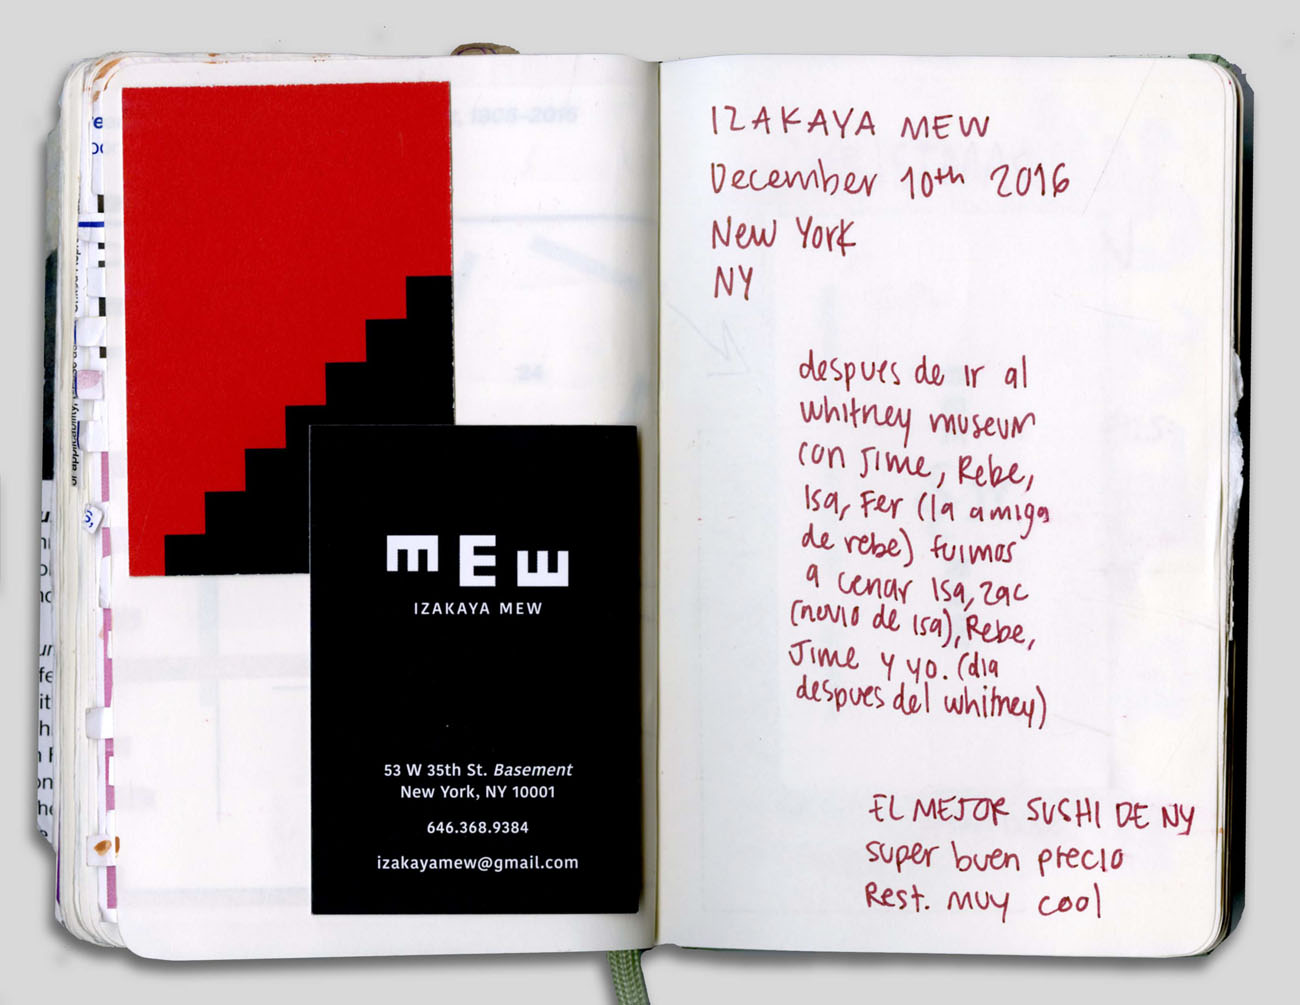 mEw
IZAKAYA MEW
53 W 35th St. Basement
New York, NY 10001
646.368.9384
izakayamew@gmail.com
IZAKAYA MEW
December 10th 2016
New York
NY
despues de ir al
whitney museum
con Jime, Rebe,
Isa, Fer (la amiga
de rebe) fuimos
a cenar Isa, zac
(novio de Isa), Rebe,
Jime y yo. (dia
despues del whitney)
EL MEJOR SUSHI DE NY
super buen precio
Rest. muy cool